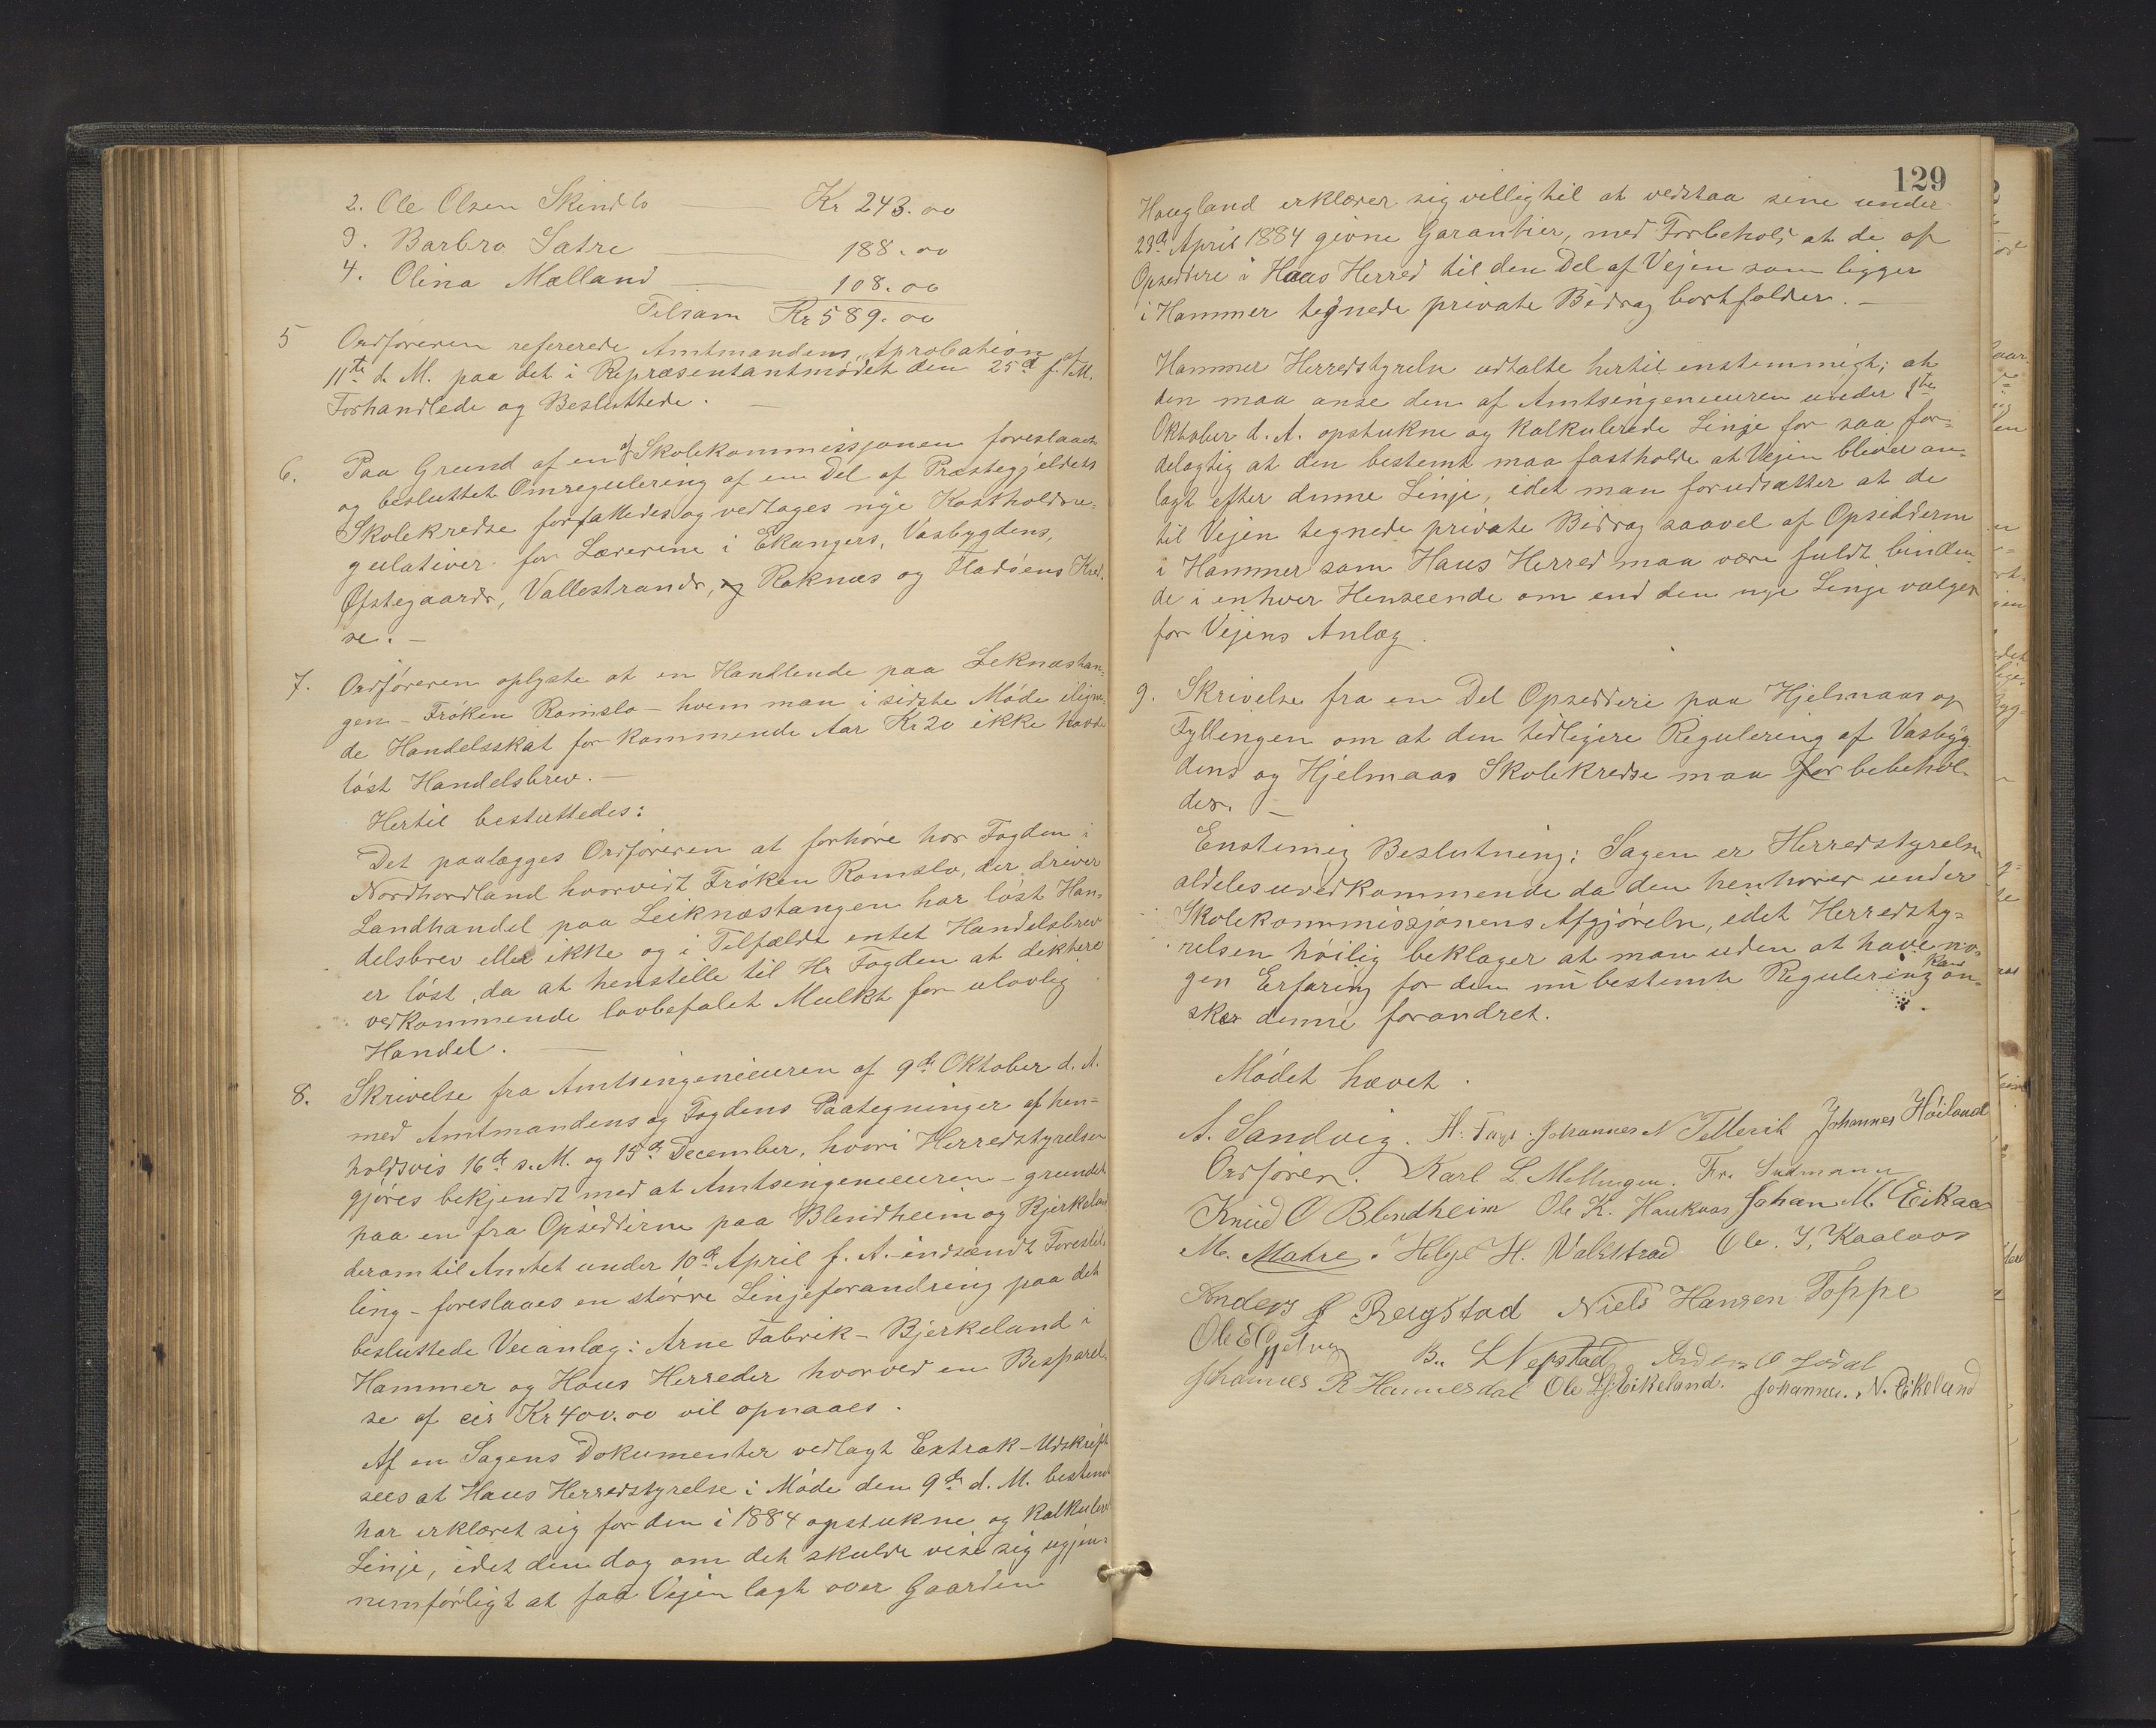 2. Ole Olsen Skindlo — Kr 243.00
3. Barbro Satre — 188.00
4. Olina Mælland — 108.00
Tilsam Kr 589.00
5 Ordføreren refererede Amtmandens Aprobation af
11te d. M. paa det i Repræsentantmødet den 25d f. M.
Forhandlede og Besluttede. —
6. Paa Grund af en af Skolekommissjonen foreslaaet
og besluttet Omregulering af en Del af Præstegjeldets
Skolekredse forfattedes og vedtoges nye Kostholdsre-
gulativer for Lærerne i Ekangers, Vasbygdens,
Øfstegaards, Vallestrands, og Roknæs og Fladøens Kred-
se. —
7. Ordføreren oplyste at en Handlende paa Leknæstan-
gen – Frøken Romslo – hvem man i sidste Møde ilign-
de Handelsskat for kommende Aar Kr 20 ikke havde
løst Handelsbrev. —
Hertil besluttedes:
Det paalægges Ordføreren at forhøre hos Fogden i
Nordhordland hvorvidt Frøken Romslo, der driver
Landhandel paa Leiknæstangen har løst Han-
delsbrev eller ikke og i Tilfælde intet Handelsbrev
er løst, da at henstille til Hr Fogden at diktere
vedkommende lovbefalet Mulkt for ulovlig
Handel. —
8. Skrivelse fra Amtsingeniøren af 9de Oktober d. A.
med Amtmandens og Fogdens Paategninger af hen-
holdsvis 16de s. M. og 15de December, hvori Herredstyrelsen
gjøres bekjendt med at Amtsingeniøren – grundet
paa en fra Opsidderne paa Blindheim og Bjerkeland
derom til Amtet under 10de April f. A. indsendt Forestil-
ling – foreslaaes en større Linjeforandring paa det
besluttede Veianlæg: Arne Fabrik – Bjerkeland i
Hammer og Haus Herreder hvorved en Besparel-
se af cir Kr 400.00 vil opnaaes.
Af en Sagens Dokumenter vedlagt Extrak-Udskrift
sees at Haus Herredstyrelse i Møde den 9de d. M. bestemt
har erklæret sig for den i 1884 opstukne og kalkulerede
Linje, idet den dog om det skulde vise sig ugjen-
nemførligt at faa Vejen lagt over Gaarden
129
Haugland erklærer sig villig til at vedstaa sine under
23d April 1884 givne Garantier, med Forbehold at de af
Opsiddere i Haus Herred til den Del af Vejen som ligger
i Hammer tegnede private Bidrag bortfalder. —
Hammer Herredstyrelse udtalte hertil enstemmigt; at
den maa anse den af Amtsingeniøren under 1te
Oktober d. A. opstukne og kalkulerede Linje for saa for-
delagtig at den bestemt maa fastholde at Vejen bliver an-
lagt efter denne Linje, idet man forudsætter at de
til Vejen tegnede private Bidrag saavel af Opsidderne
i Hammer som Haus Herred maa være fuldt binden-
de i enhver Henseende om end den nye Linje vælges
for Vejens Anlæg.
9. Skrivelse fra en Del Opsiddere paa Hjelmaas og
Fyllingen om at den tidligere Regulering af Vasbyg-
dens og Hjelmaas Skolekredse maa for bebehol-
des. —
Enstemig Beslutning: Sagen er Herredstyrelsen
aldeles uvedkommende da den henhører under
Skolekommissjonens Afgjørelse, idet Herredsty-
relsen høilig beklager at man uden at have no-
gen Erfaring for den nu bestemte Regulering kan øn-
sker denne forandret.
Mødet hævet.
A. Sandvig. H. Fugl. Johannes N Tellevik Johannes Høiland
Ordfører. Karl L. Mellingen. Fr. Sudmann
Knud O Blendheim Ole K. Haukaas Johan M. Eikaas
M. Matre. Helge H. Valestrad Ole. I. Kaalaas
Anders J Bergstad Niels Hansen Toppe
Ole E
B. L Nepstad Anders O
Johannes R Hannesdal Ole L. Eikeland. Johannes. N. Eikeland